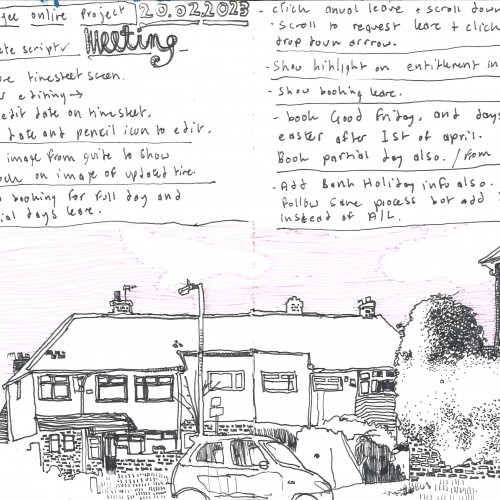 online Project
20.02.2023
Meeting
timesheet screen.
editing →
edit date on timesheet.
date and pencil icon to edit.
image from guite to show
on image of updated time.
booking for full day and
days leave.
- click anual leave + scroll down
- Scroll to request leave + click
drop down arrrow.
- Show hihlight on entitlement in
- Show booking leave.
- book Good Friday, and days
easter after 1st of april.
Book partial day also. / from
- Add Bank Holiday info also.
follow same process but add
instead of A/L.